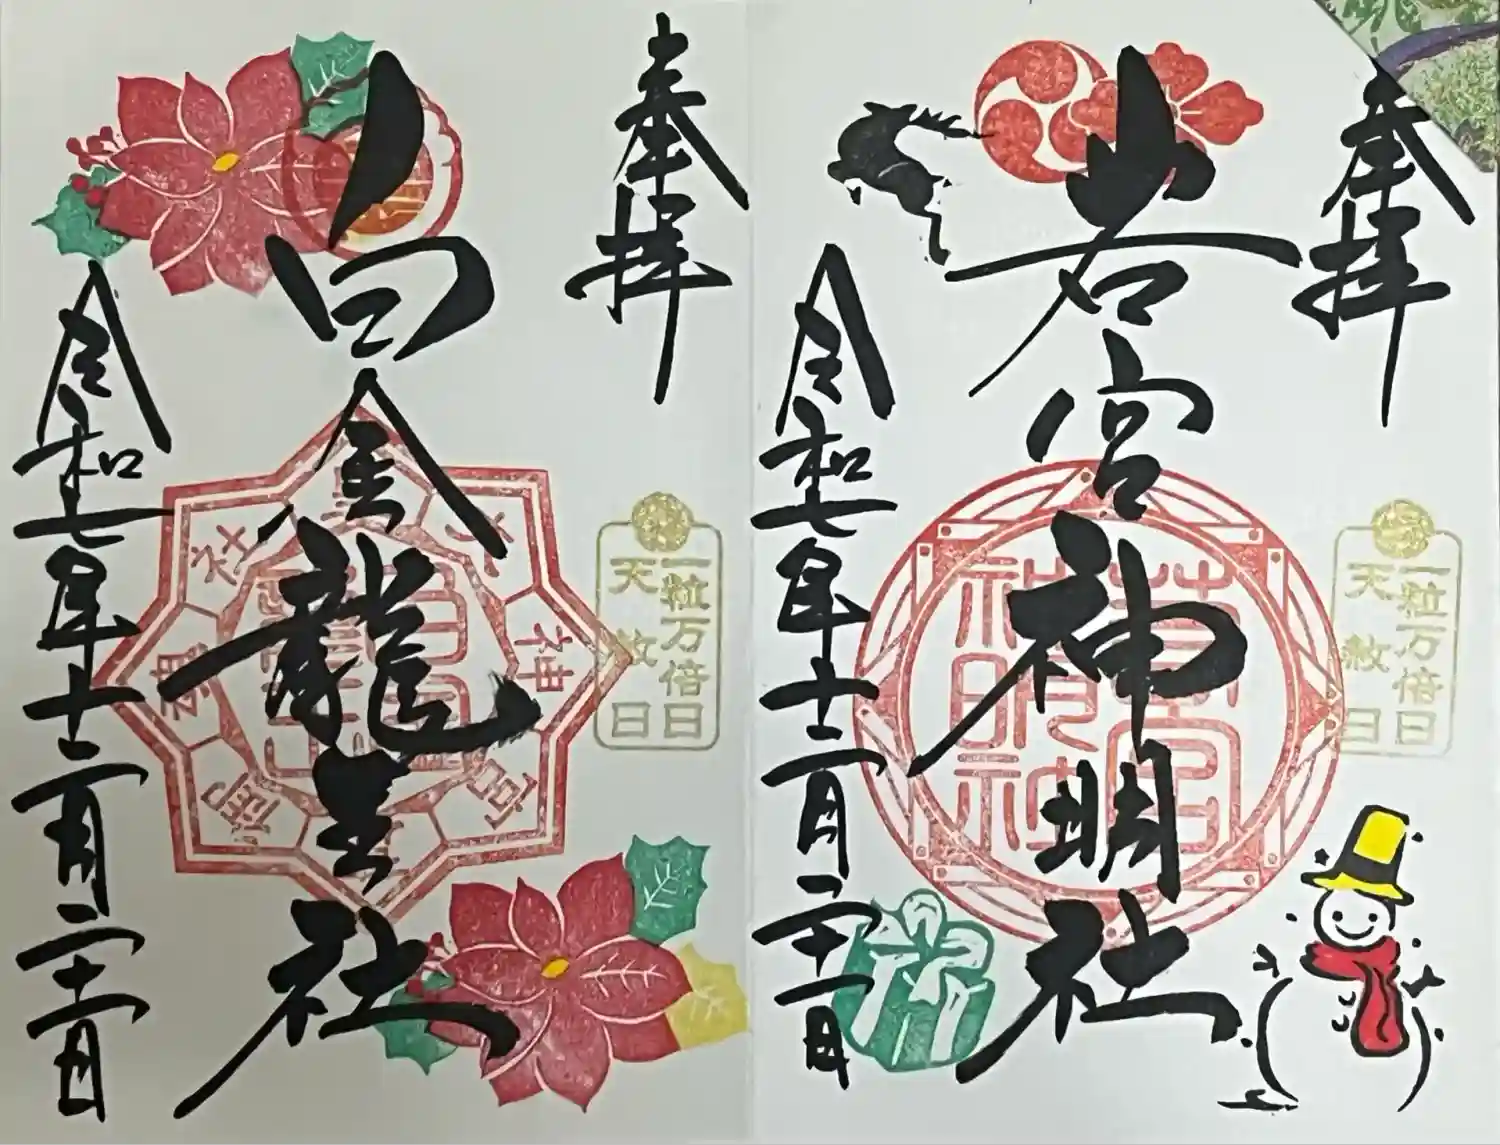 奉拝
若宮神明社
一粒万倍日
天赦日
令和七年十二月二十一日
奉拝
白金龍王社
一粒万倍日
天赦日
令和七年十二月二十一日